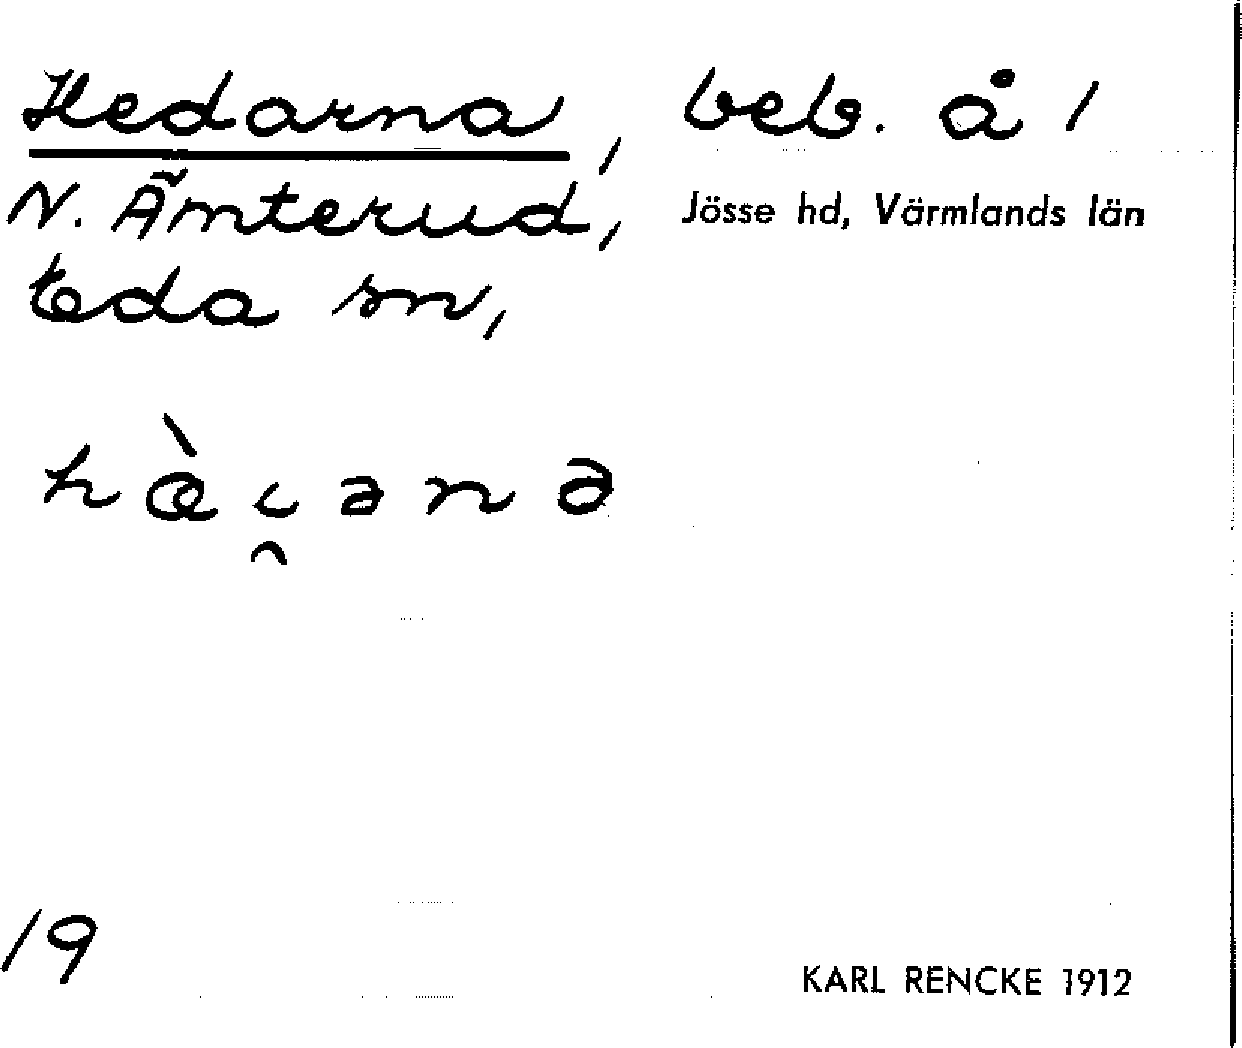 Hedarna, beb. å 1
N. Ämterud, Jösse hd, Värmlands län
Eda sn,
19
KARL RENCKE 1912